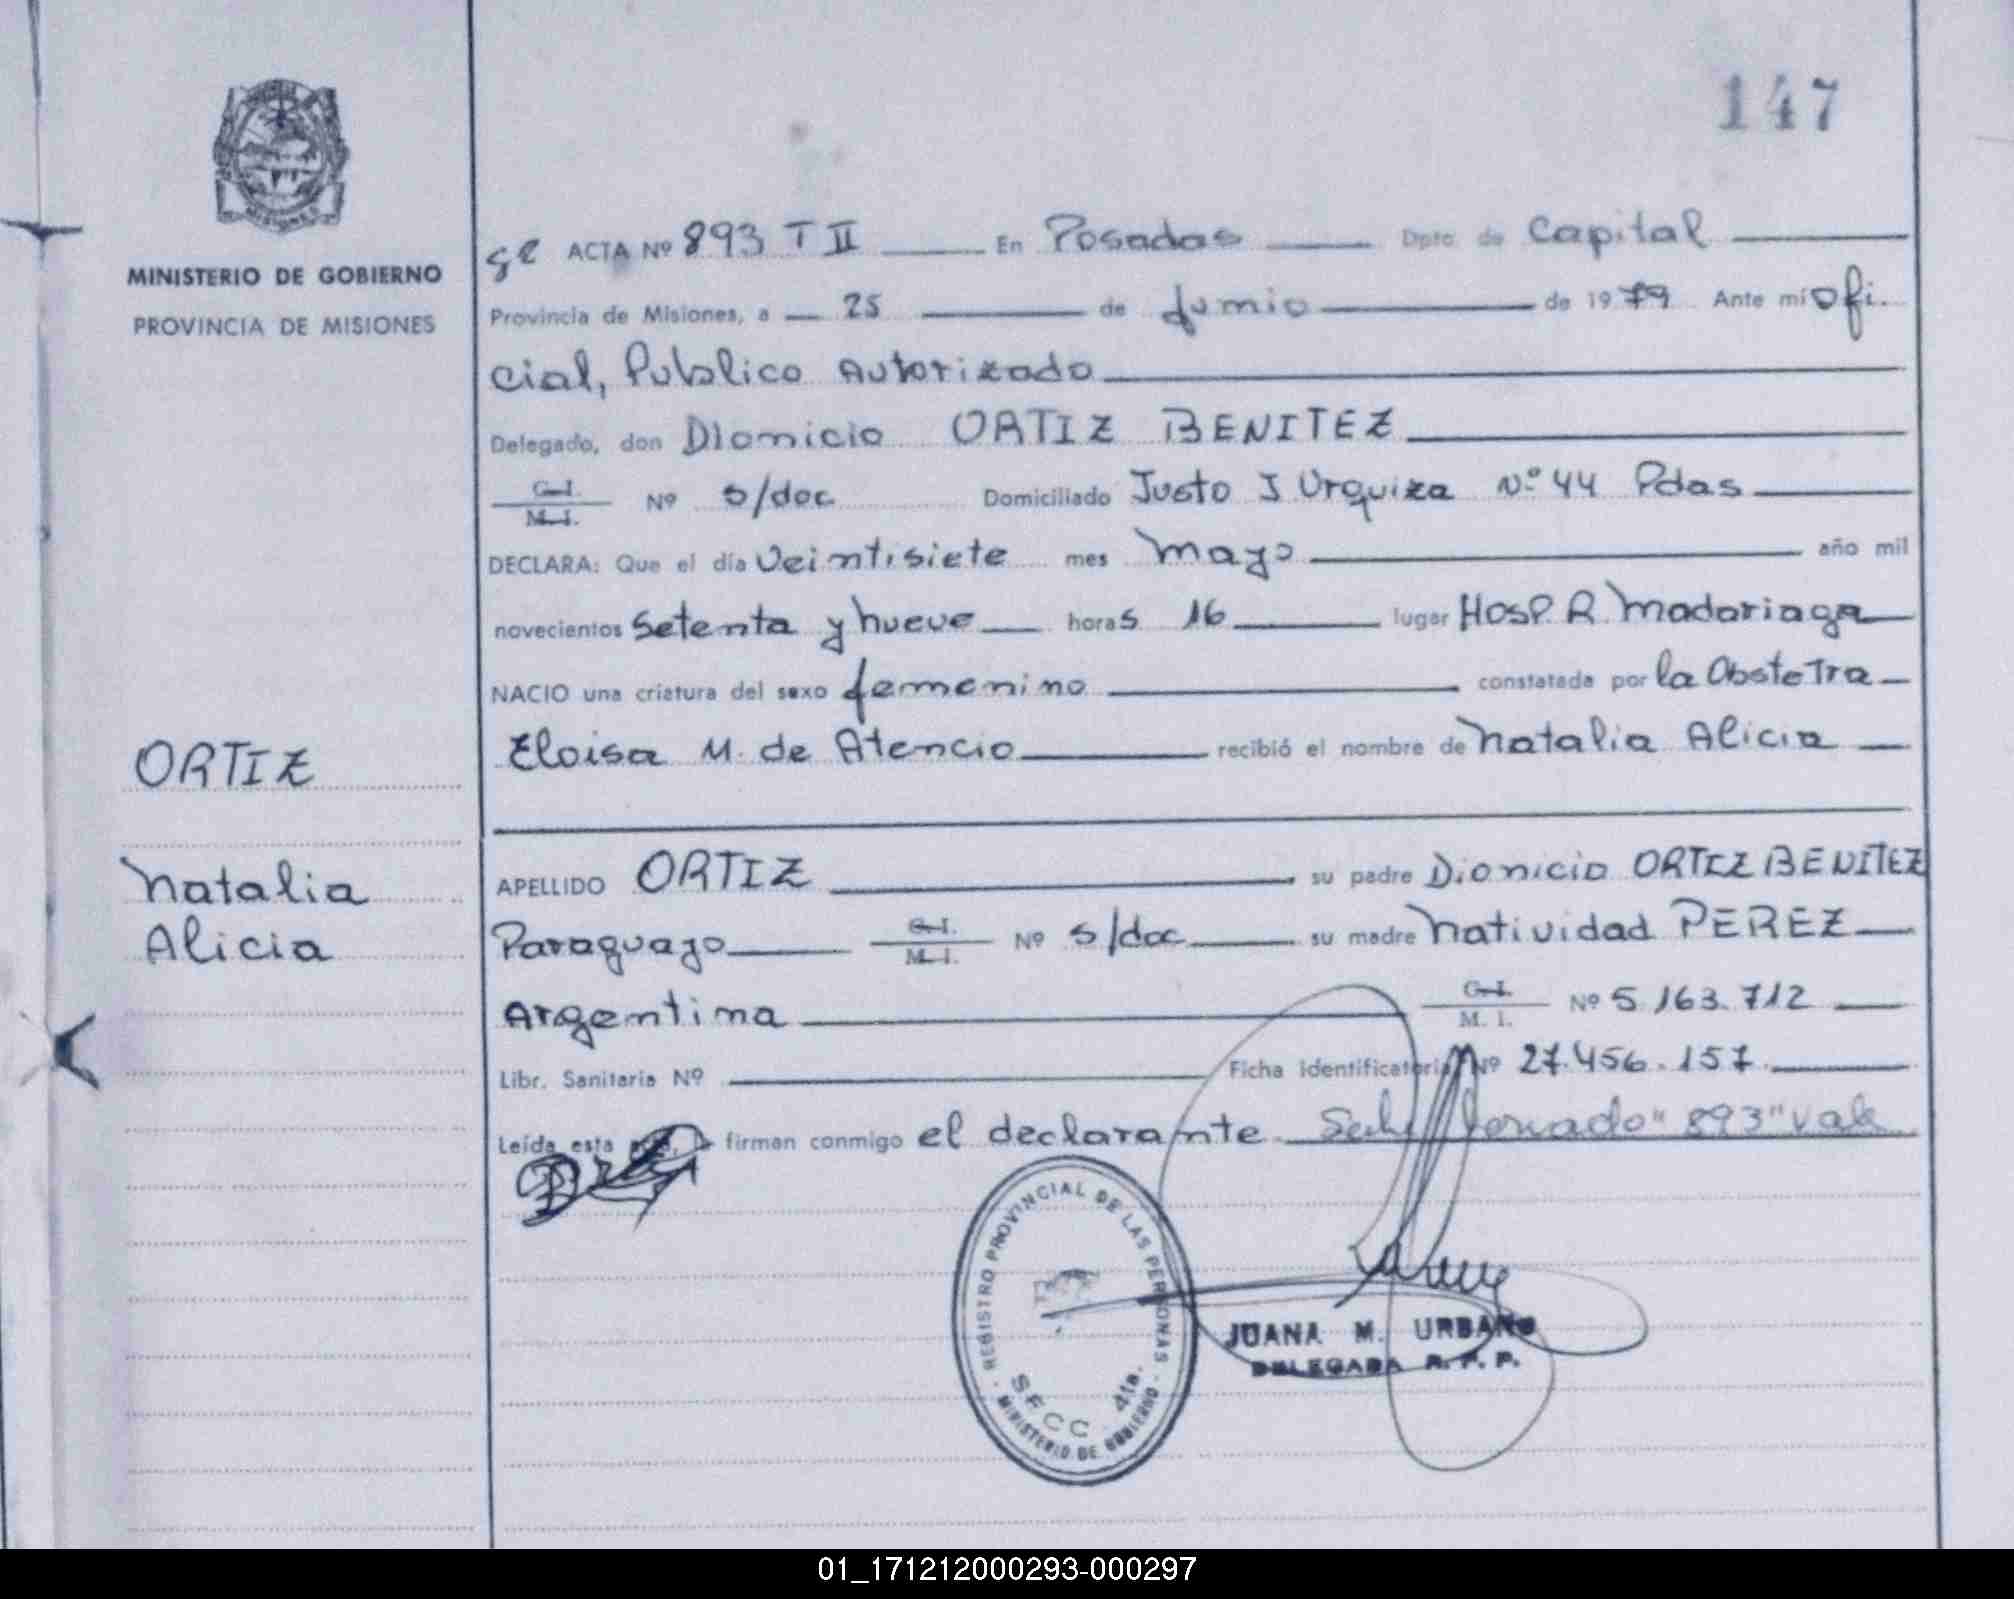 147
MINISTERIO DE GOBIERNO
PROVINCIA DE MISIONES
ORTIZ
Natalia
Alicia
ACTA Nº 893 T II En Posadas Dpto de Capital
Provincia de Misiones, a 25 de Junio de 1979 Ante mí Ofi.
cial, Publico Autorizado
Delegado, don Dionicio ORTIZ BENITEZ
C.I. M.I. Nº s/doc Domiciliado Justo J Urquiza Nº 44 Pdas
DECLARA: Que el día Veintisiete mes Mayo año mil
novecientos Setenta y nueve horas 16 lugar Hosp. R. Madariaga
NACIO una criatura del sexo femenino constatada por la Obstetra
Eloisa M. de Atencio recibió el nombre de Natalia Alicia
APELLIDO ORTIZ su padre Dionicio ORTIZ BENITEZ
Paraguayo C.I. M.I. Nº s/doc su madre Natividad PEREZ
Argentina C.I. M.I. Nº 5.163.712
Libr. Sanitaria Nº Ficha identificatoria Nº 27.456.157
Leída esta firman conmigo el declarante "893" Vale
REGISTRO PROVINCIAL DE LAS PERSONAS
SECC. 4ta.
MINISTERIO DE GOBIERNO
JUANA M. URBANO
DELEGADA R. P. P.
01_171212000293-000297